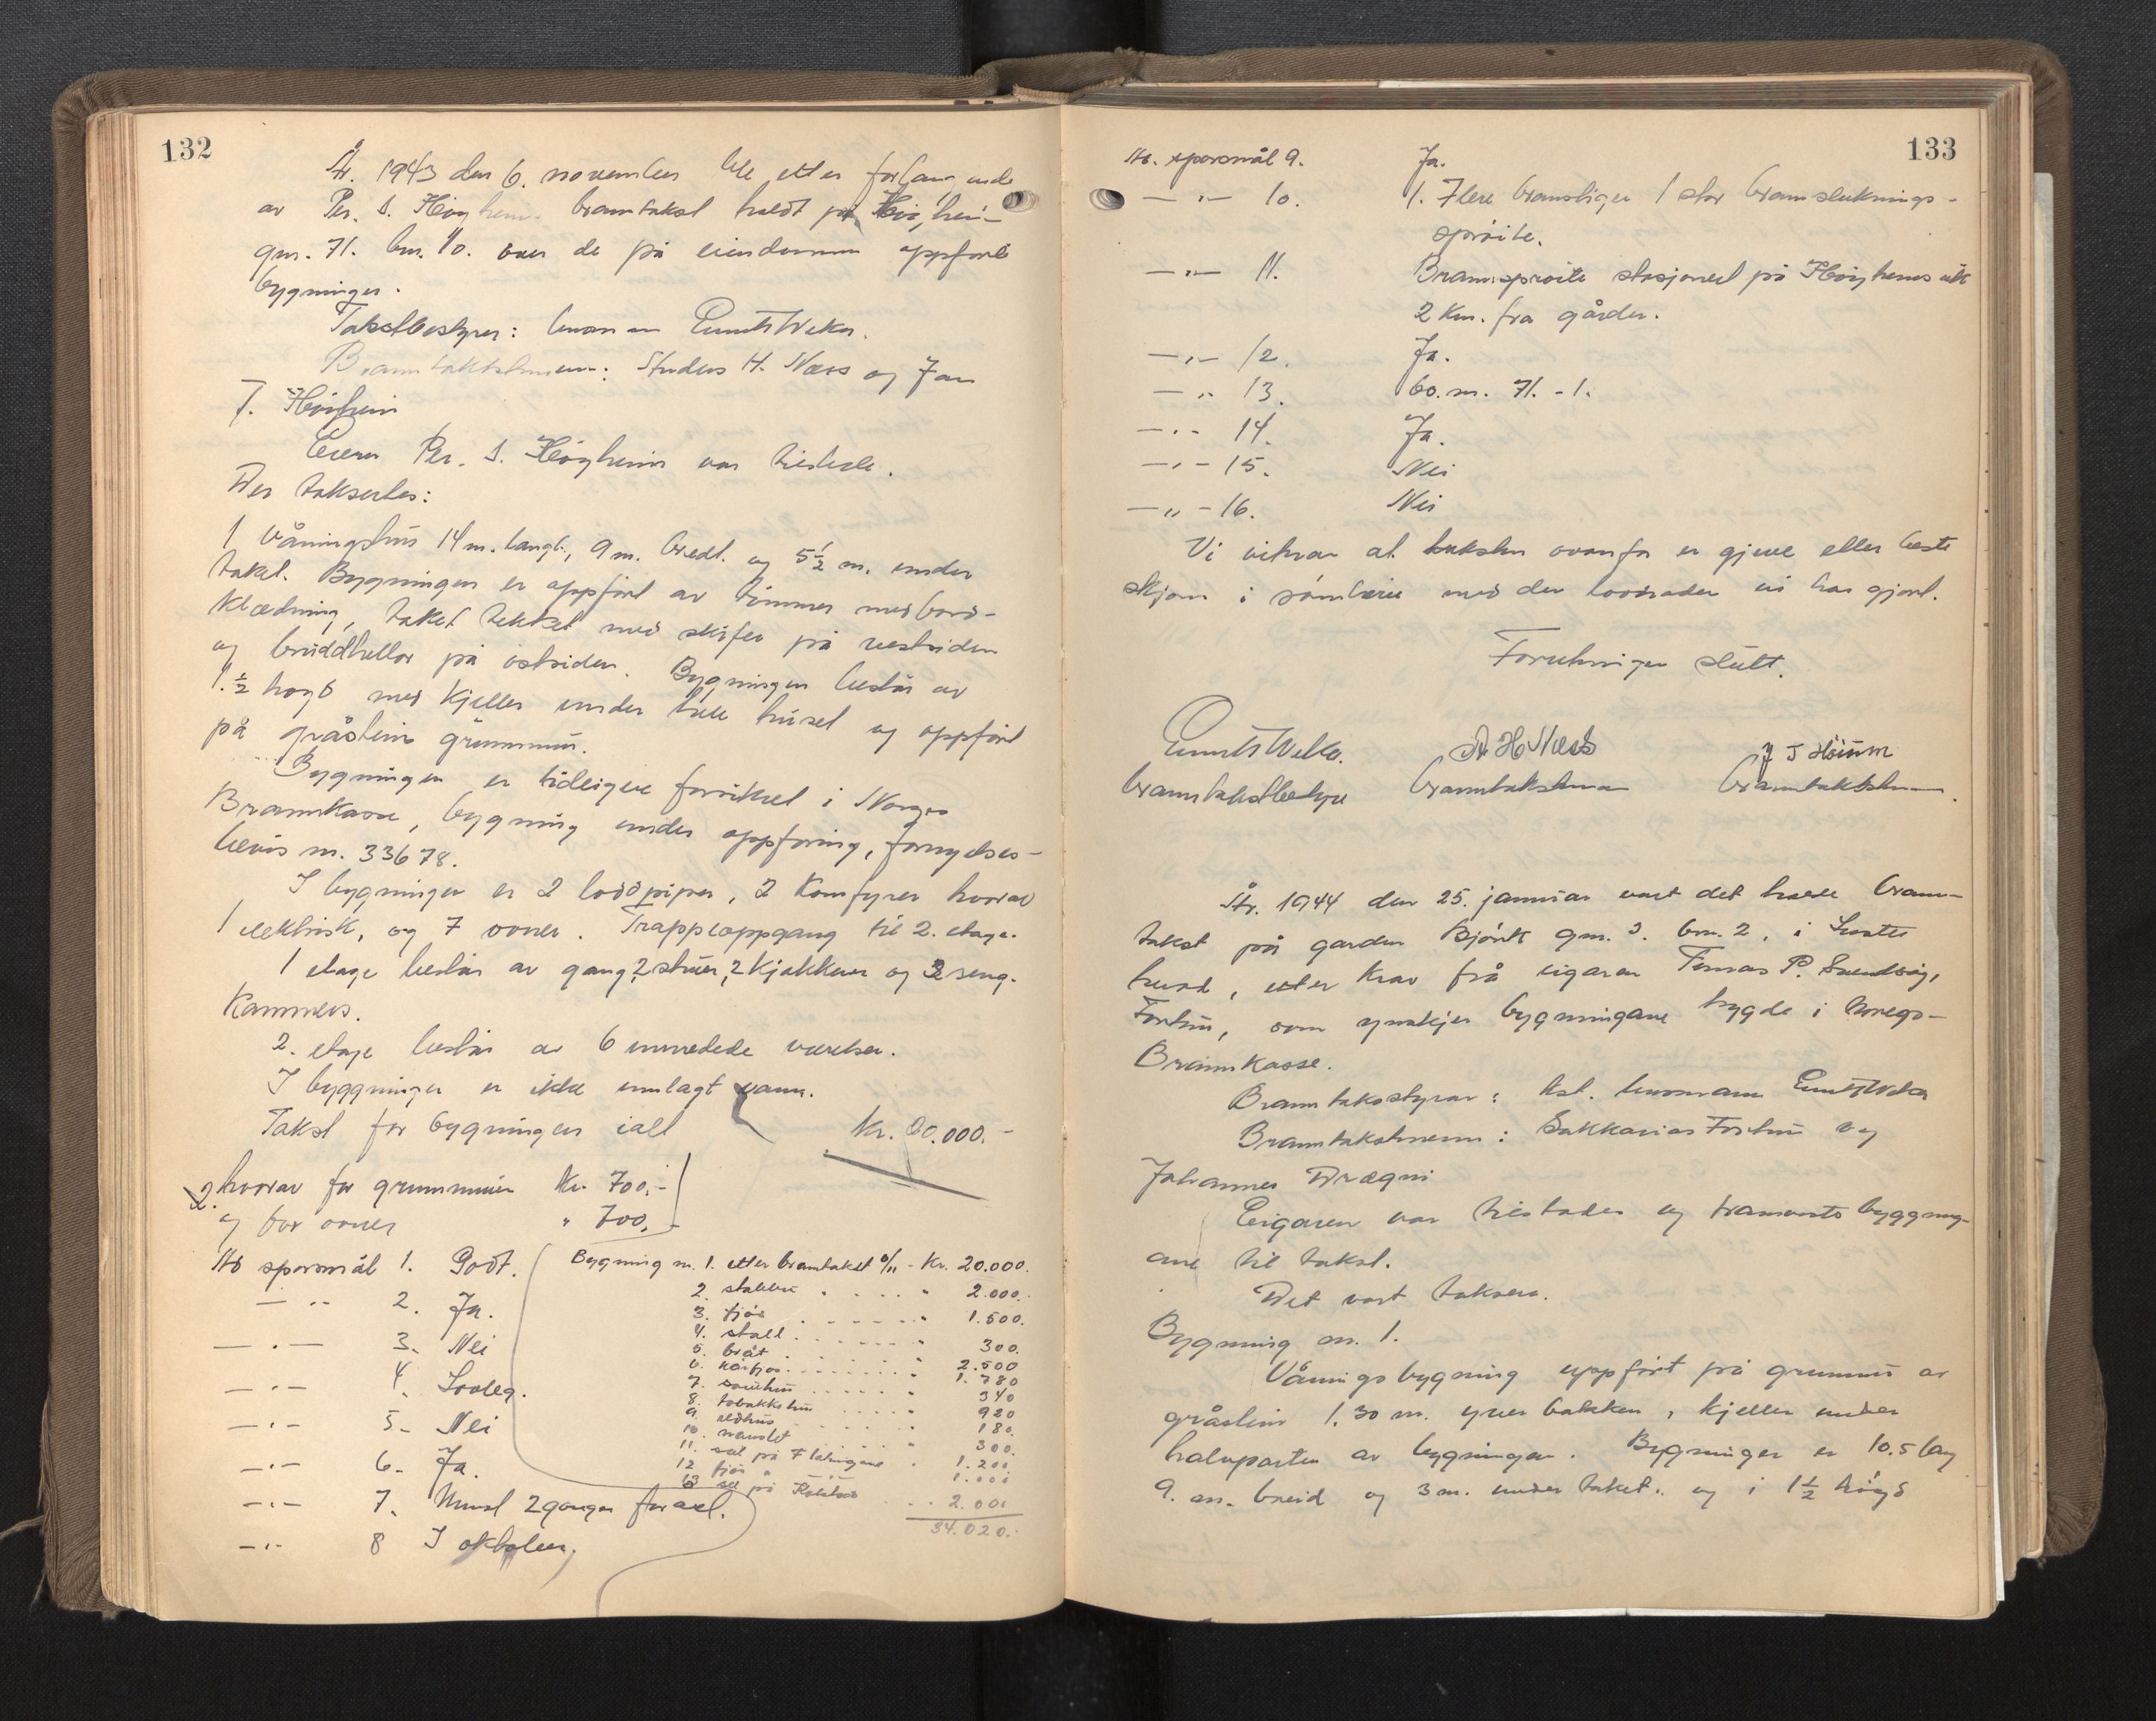 132
År. 1943 den 6. november ble etter forlangende
av Per. S. Høyheim branntakst holdt på Høyheim
gnr. 71. bnr. 10. over de på eiendommen oppførte
bygninger.
Takstbestyrer: lensmann
Branntakstmenn: H. Næss og Jan
J. Høiheim
Eieren Per. S. Høyheim var tilstede.
Der taksertes:
1 våningshus 14 m. langt, 9 m. bredt og 5½ m. under
taket. Bygningen er oppført av tømmer med bord-
klædning, taket tekket med skifer på vestsiden
og bruddheller på østsiden. Bygningen består av
1.½ høgd med kjeller under hele huset og oppført
på gråstein grunnmur.
Bygningen er tidligere forsikret i Norges
Brannkasse, bygning under oppføring, fornyelses-
bevis nr. 33678.
I bygningen er 2 loddpiper, 2 komfyrer hvorav
1 elektrisk, og 7 ovner. Trappeoppgang til 2. etage.
1 etage består av gang, 2 stuer, 2 kjøkkener og 3 seng-
kammers.
2. etage består av 6 innredede værelser.
I byggningen er ikke innlagt vann.
Takst for bygningen ialt Kr. 20.000.-
2. hvorav for grunnmuren Kr. 700,-
og for ovner " 700,-
Til spørsmål 1. Godt.
— " — 2. Ja.
— " — 3. Nei
— " — 4. Lovleg.
— " — 5. Nei
— " — 6. Ja.
— " — 7. Minst 2 ganger for året.
— " — 8 I oktober.
Bygning nr. 1. etter branntakst 6/11 - Kr. 20.000.
2. stabbur " 2.000.
3. fjøs " 1.500.
4. stall " 300.
5. 2.500
6. 1.780
7. 340
8. tobakkshus 920
9. vedhus 180.
10. naustet 300.
11. sel på 1.200
12 fjøs " 1.000
13 sel på 2.000
34.020.-
133
Til spørsmål 9. Ja.
— " — 10. 1. Flere brannstiger 1 stor brannsluknings-
sprøite.
— " — 11. Brannsprøite stasjonert på Høyheimsvik
2 km. fra gården.
— " — 12. Ja.
— " — 13. 60. m. 71. - 1.
— " — 14. Ja.
— " — 15. Nei
— " — 16. Nei
Vi vitnar at taksten ovanfor er gjeve etter beste
skjøn i samhøve med den lovnaden vi har gjort.
Forretningen slutt.
A H Næss J J Høium
branntakstbestyrer branntakstmann branntakstmann.
År. 1944 den 25. januar vart det halde brann-
takst på garden Bjørk gnr. 3. bnr. 2. i Luster
herad, etter krav frå eigaren Tomas P.
Fortun, som ynskjer bygningane trygde i Noregs-
Brannkasse.
Branntakstsstyrar: kst. lensmann
Branntakstmenn: Sakkarias Fortun og
Johannes Drægni
Eigaren var tilstades og framviste byggning-
ane til takst.
Det vart taksera.
Bygning nr. 1.
Våningsbygning uppført på grunnmur av
gråstein 1.30 m. yver bakken, kjeller under
halvparten av bygningen. Bygningen er 10.5 lang
9. m. breid og 3 m. under taket. og i 1½ høgd